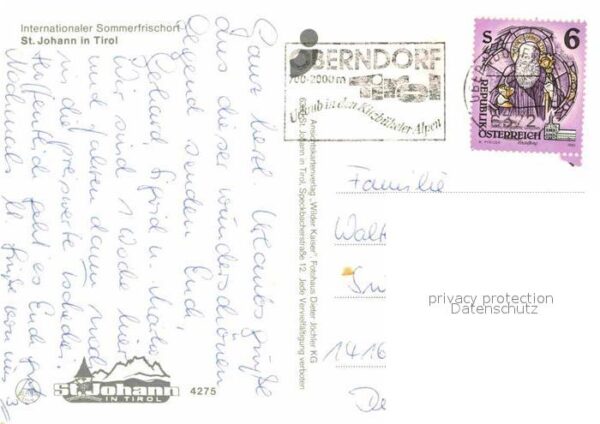 Internationaler Sommerfrischort
St. Johann in Tirol
Ganz herzl. Urlaubsgrüße
aus dieser wunderschönen
Gegend senden Euch
Gerhard, Sigrid u.
Wir sind 1 Woche hier
und fahren dann noch
in die
Hoffentlich geht es Euch gut.
Nochmals lb. Grüße von uns 3
St. Johann
IN TIROL
4275
Ansichtskartenverlag „Wilder Kaiser", Fotohaus Dieter Jöchler KG
6380 St. Johann in Tirol, Speckbacherstraße 12. Jede Vervielfältigung verboten
OBERNDORF
700-2000m
Tirol
Urlaub in den Kitzbüheler Alpen
S 6
REPUBLIK
ÖSTERREICH
Familie
Walt
1416
De
privacy protection
Datenschutz